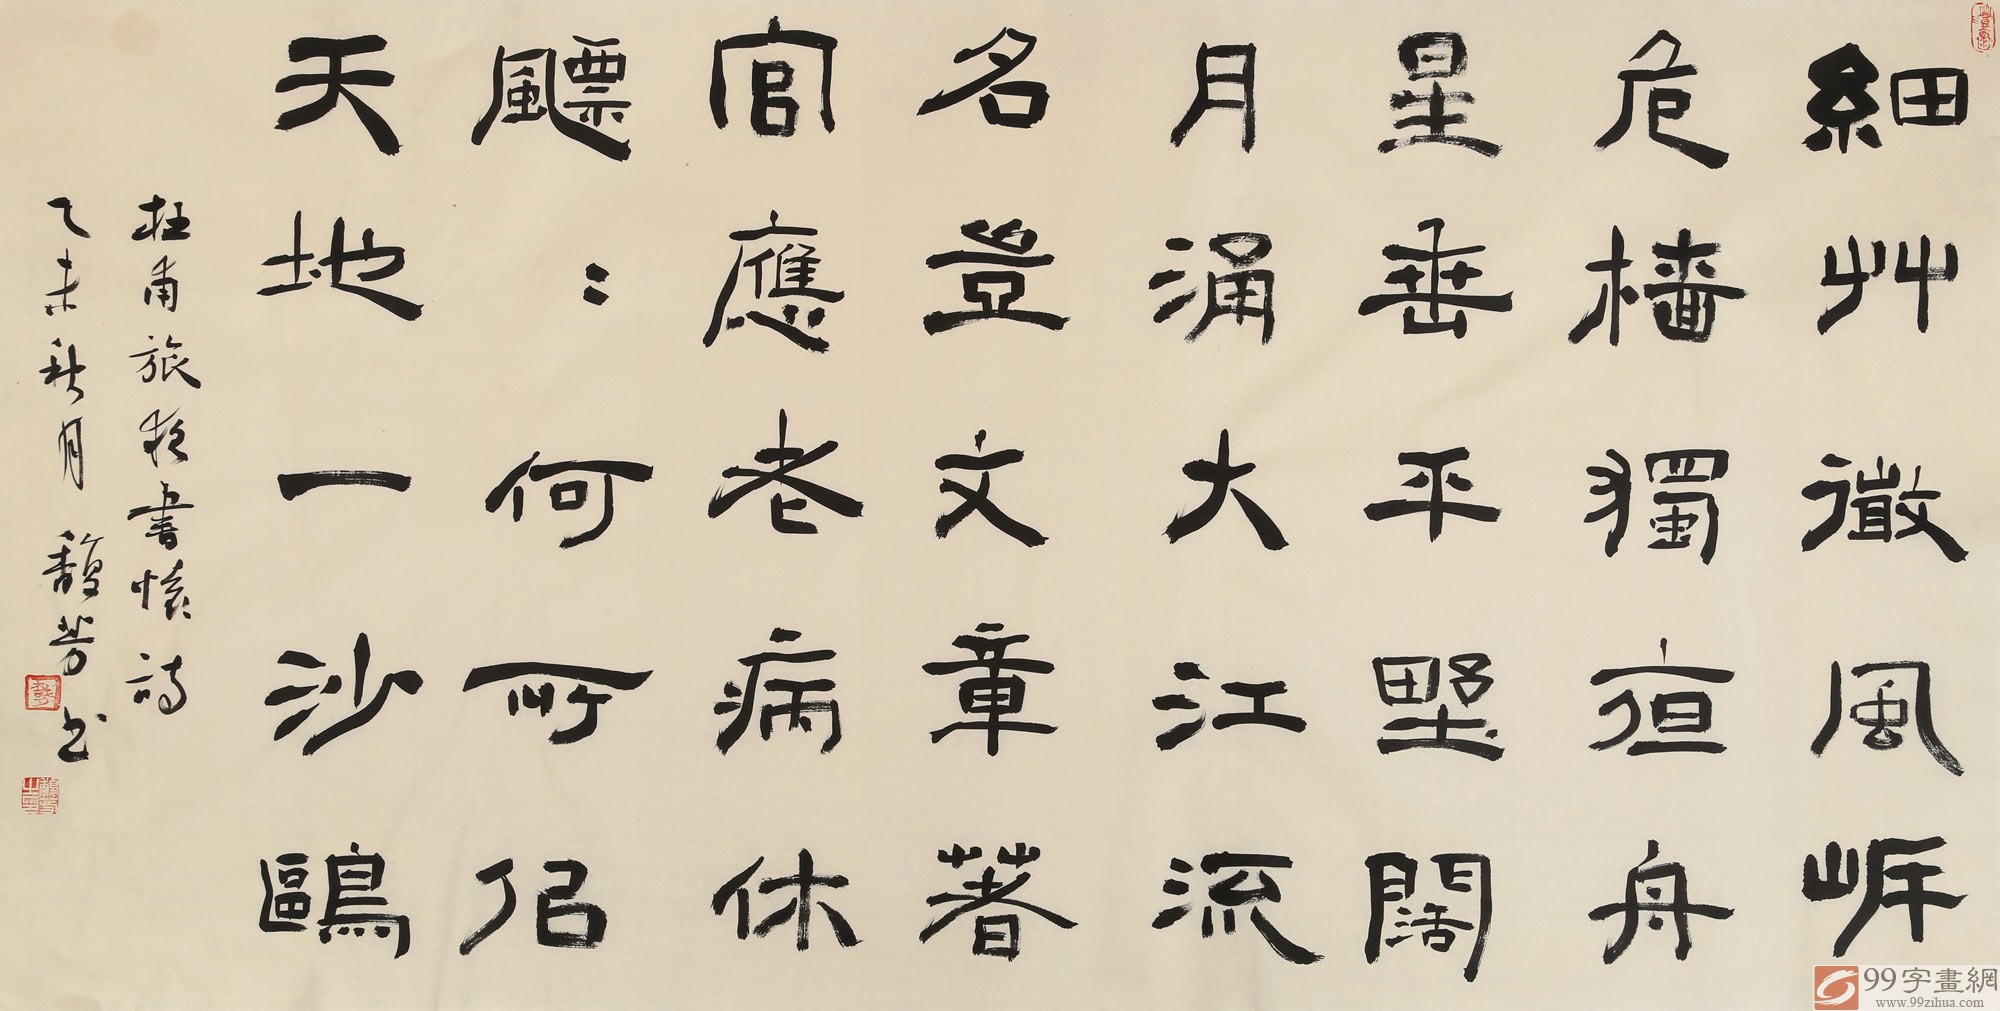 細艸微風岸
危檣獨夜舟
星垂平野闊
月涌大江流
名豈文章著
官應老病休
飃〻何所佀
天地一沙鷗
杜甫旅夜書懷詩
乙未秋月馥芳书
99字畫網
www.99zihua.com